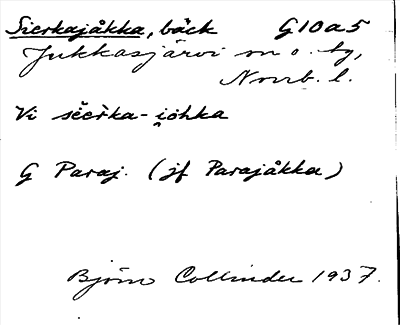 Sierkajåkka, bäck G10a5
Jukkasjärvi sn o. tg,
Norrb. l.
Vi sĕĕr̆ka-i̯ohka
G Paraj. (jf Parajåkka)
Björn Collinder 1937.